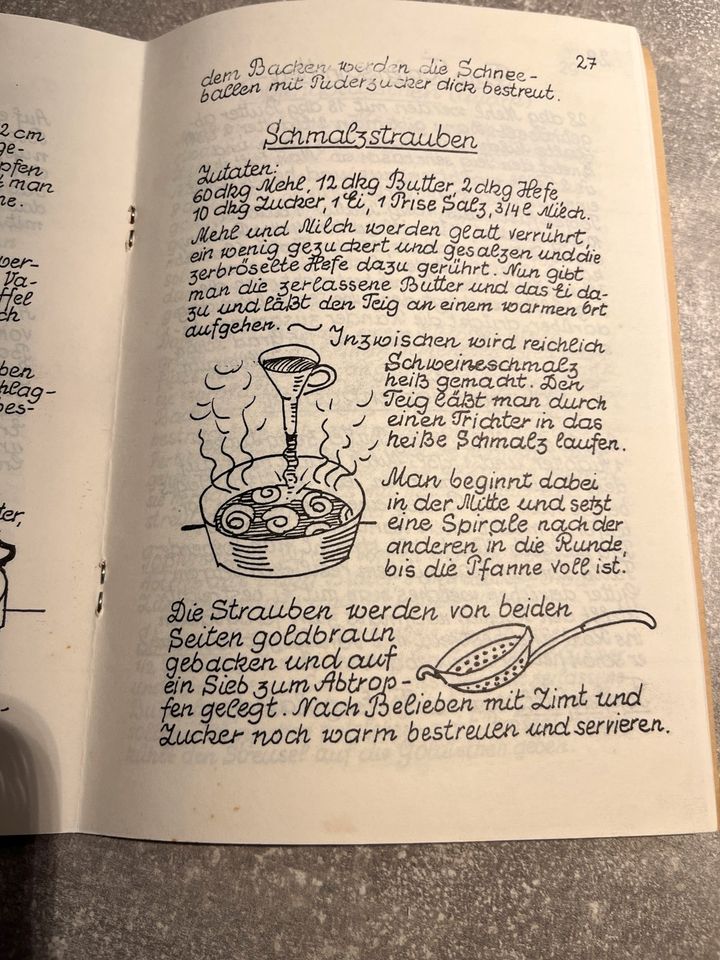 2 cm
ge-
pfen
man
ne.
wer-
Va-
ffel
ch
ben
hlag-
bes-
ter,
27
dem Backen werden die Schnee-
ballen mit Puderzucker dick bestreut.
Schmalzstrauben
Zutaten:
60 dkg Mehl, 12 dkg Butter, 2 dkg Hefe,
10 dkg Zucker, 1 Ei, 1 Prise Salz, 3/4 l Milch.
Mehl und Milch werden glatt verrührt,
ein wenig gezuckert und gesalzen und die
zerbröselte Hefe dazu gerührt. Nun gibt
man die zerlassene Butter und das Ei da-
zu und läßt den Teig an einem warmen Ort
aufgehen. ~ Inzwischen wird reichlich
Schweineschmalz
heiß gemacht. Den
Teig läßt man durch
einen Trichter in das
heiße Schmalz laufen.
Man beginnt dabei
in der Mitte und setzt
eine Spirale nach der
anderen in die Runde,
bis die Pfanne voll ist.
Die Strauben werden von beiden
Seiten goldbraun
gebacken und auf
ein Sieb zum Abtrop-
fen gelegt. Nach Belieben mit Zimt und
Zucker noch warm bestreuen und servieren.